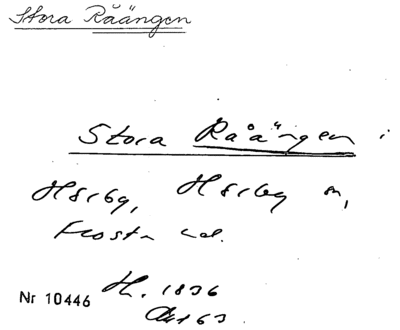 Stora Råängen
Stora Råängen i
Hörby, Hörby sn,
Frosta hd.
Nr 10446 H. 1836
Akt 63.